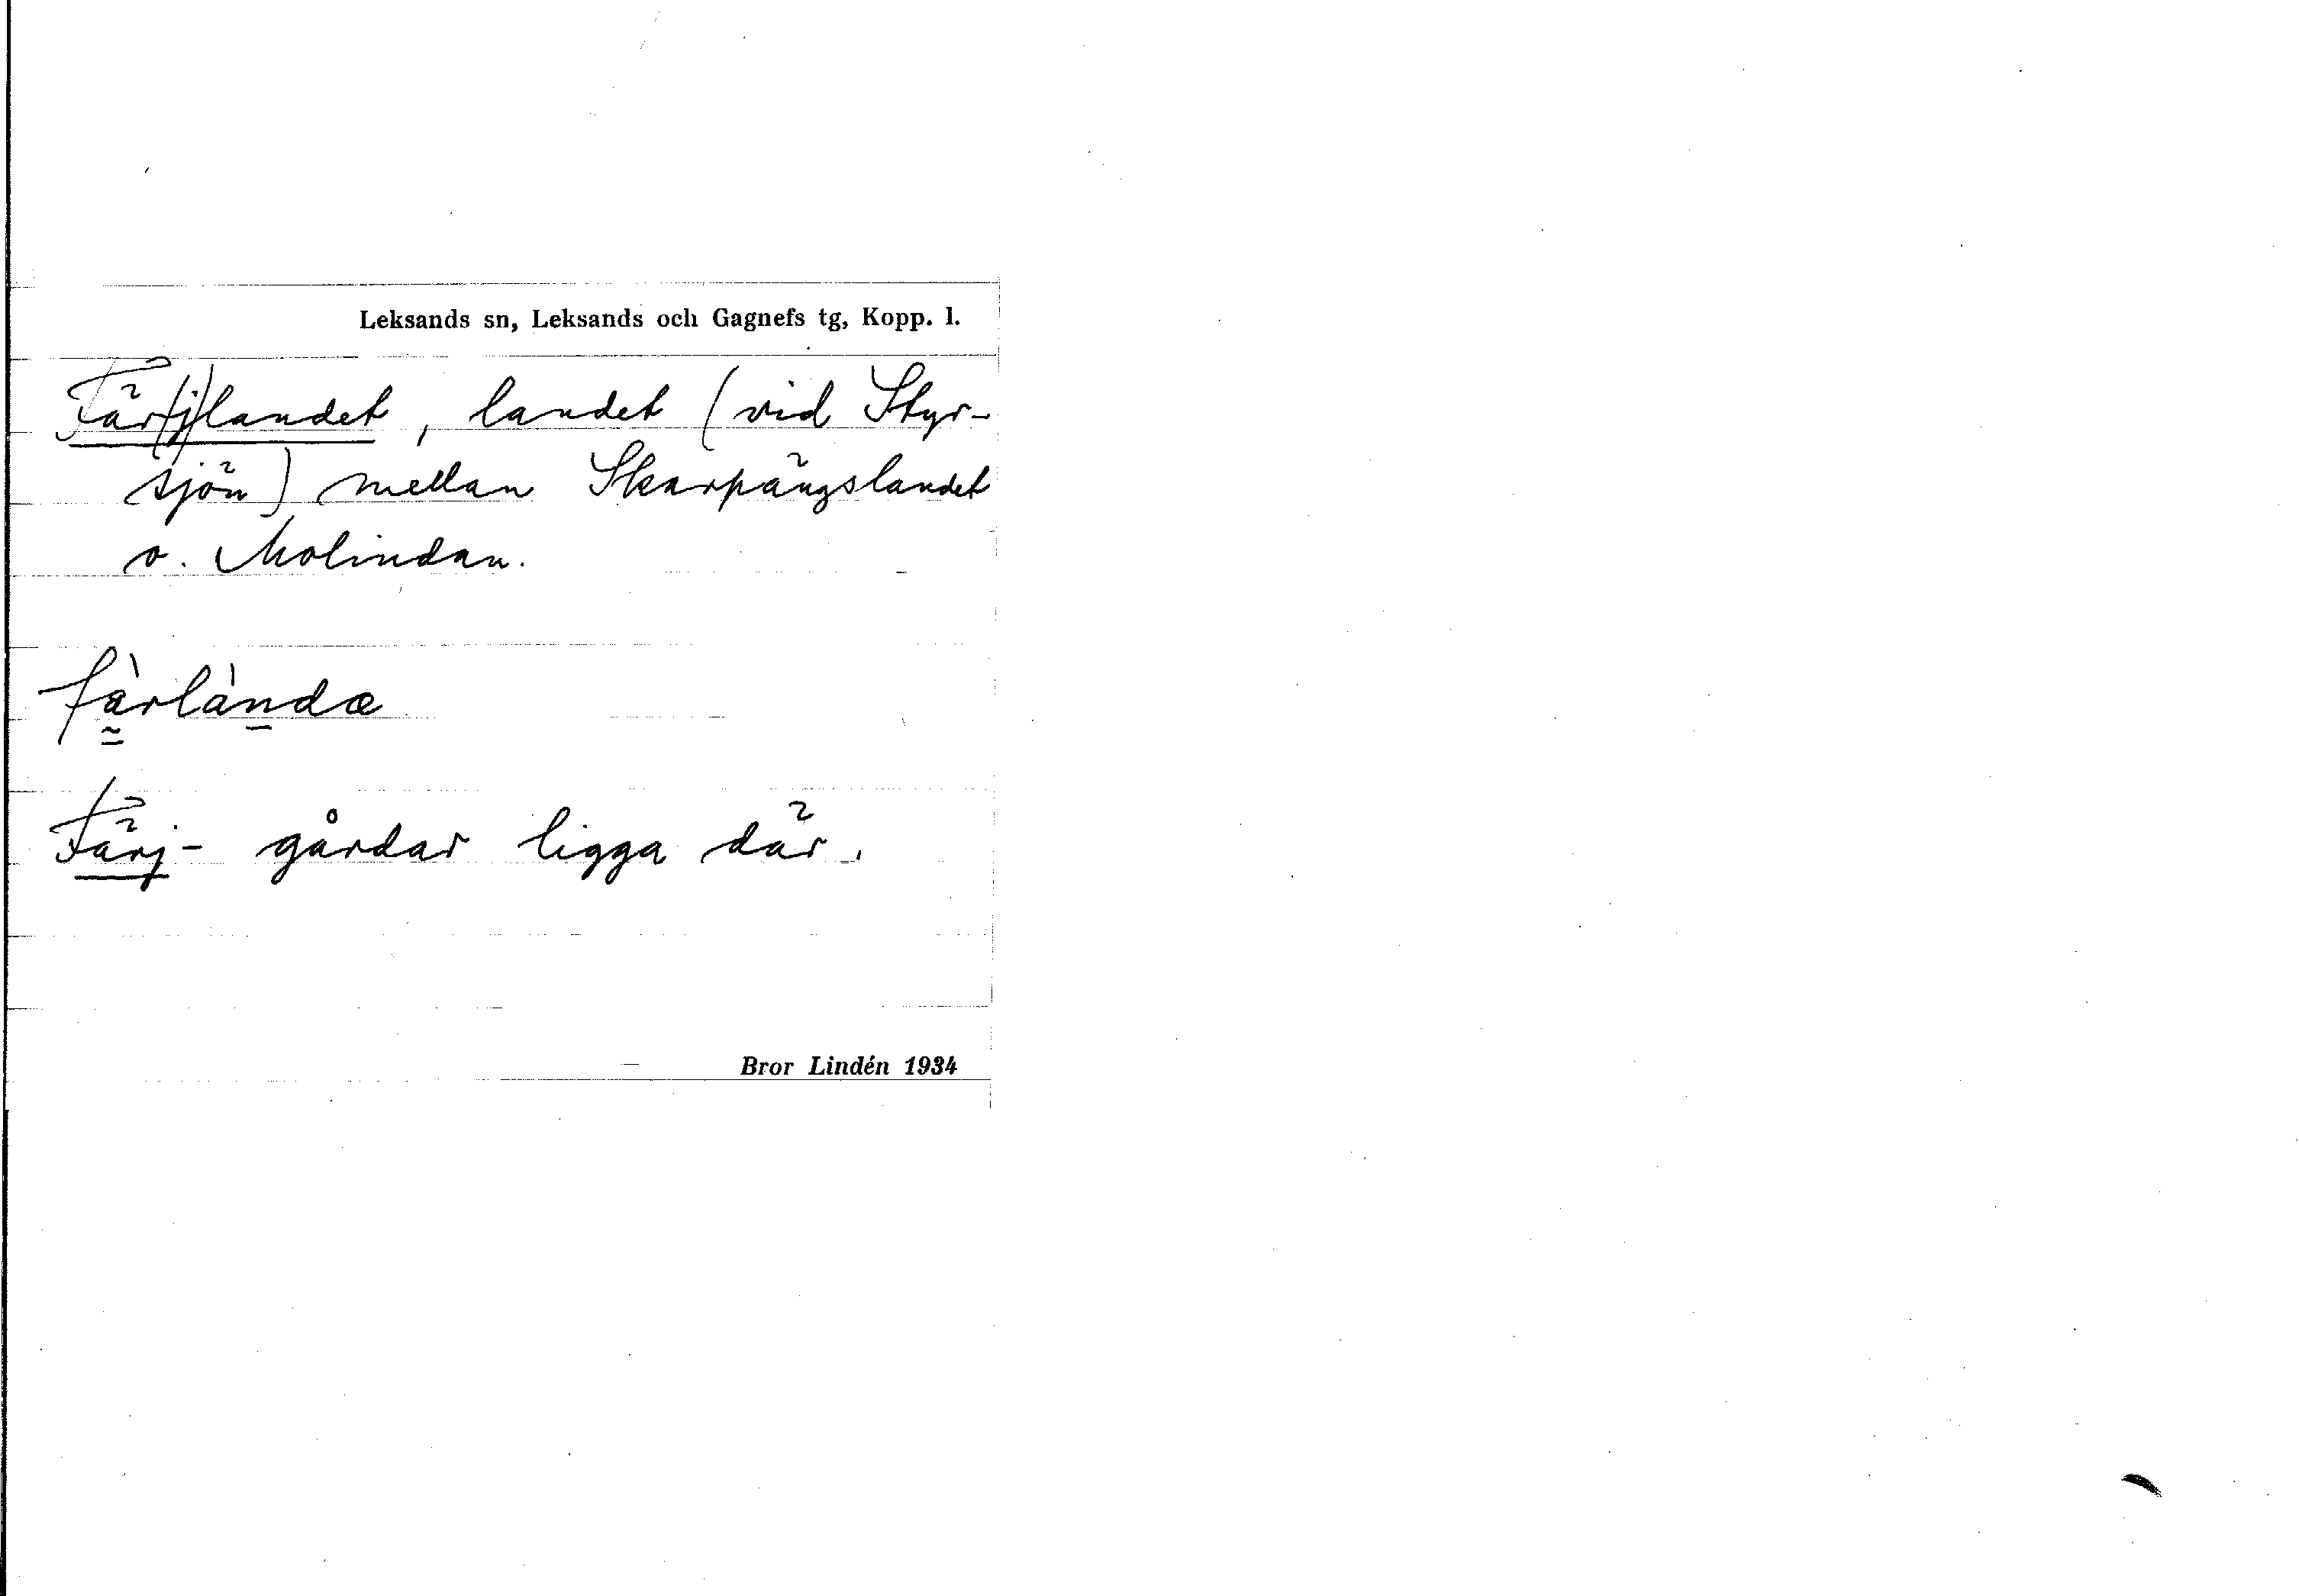 Leksands sn, Leksands och Gagnefs tg, Kopp. l.
Fär(j)landet, landet (vid Styr-
sjön) mellan Skarpängslandet
o. Molindan.
fàrlàndæ
Färj- gårdar ligga där.
Bror Lindén 1934